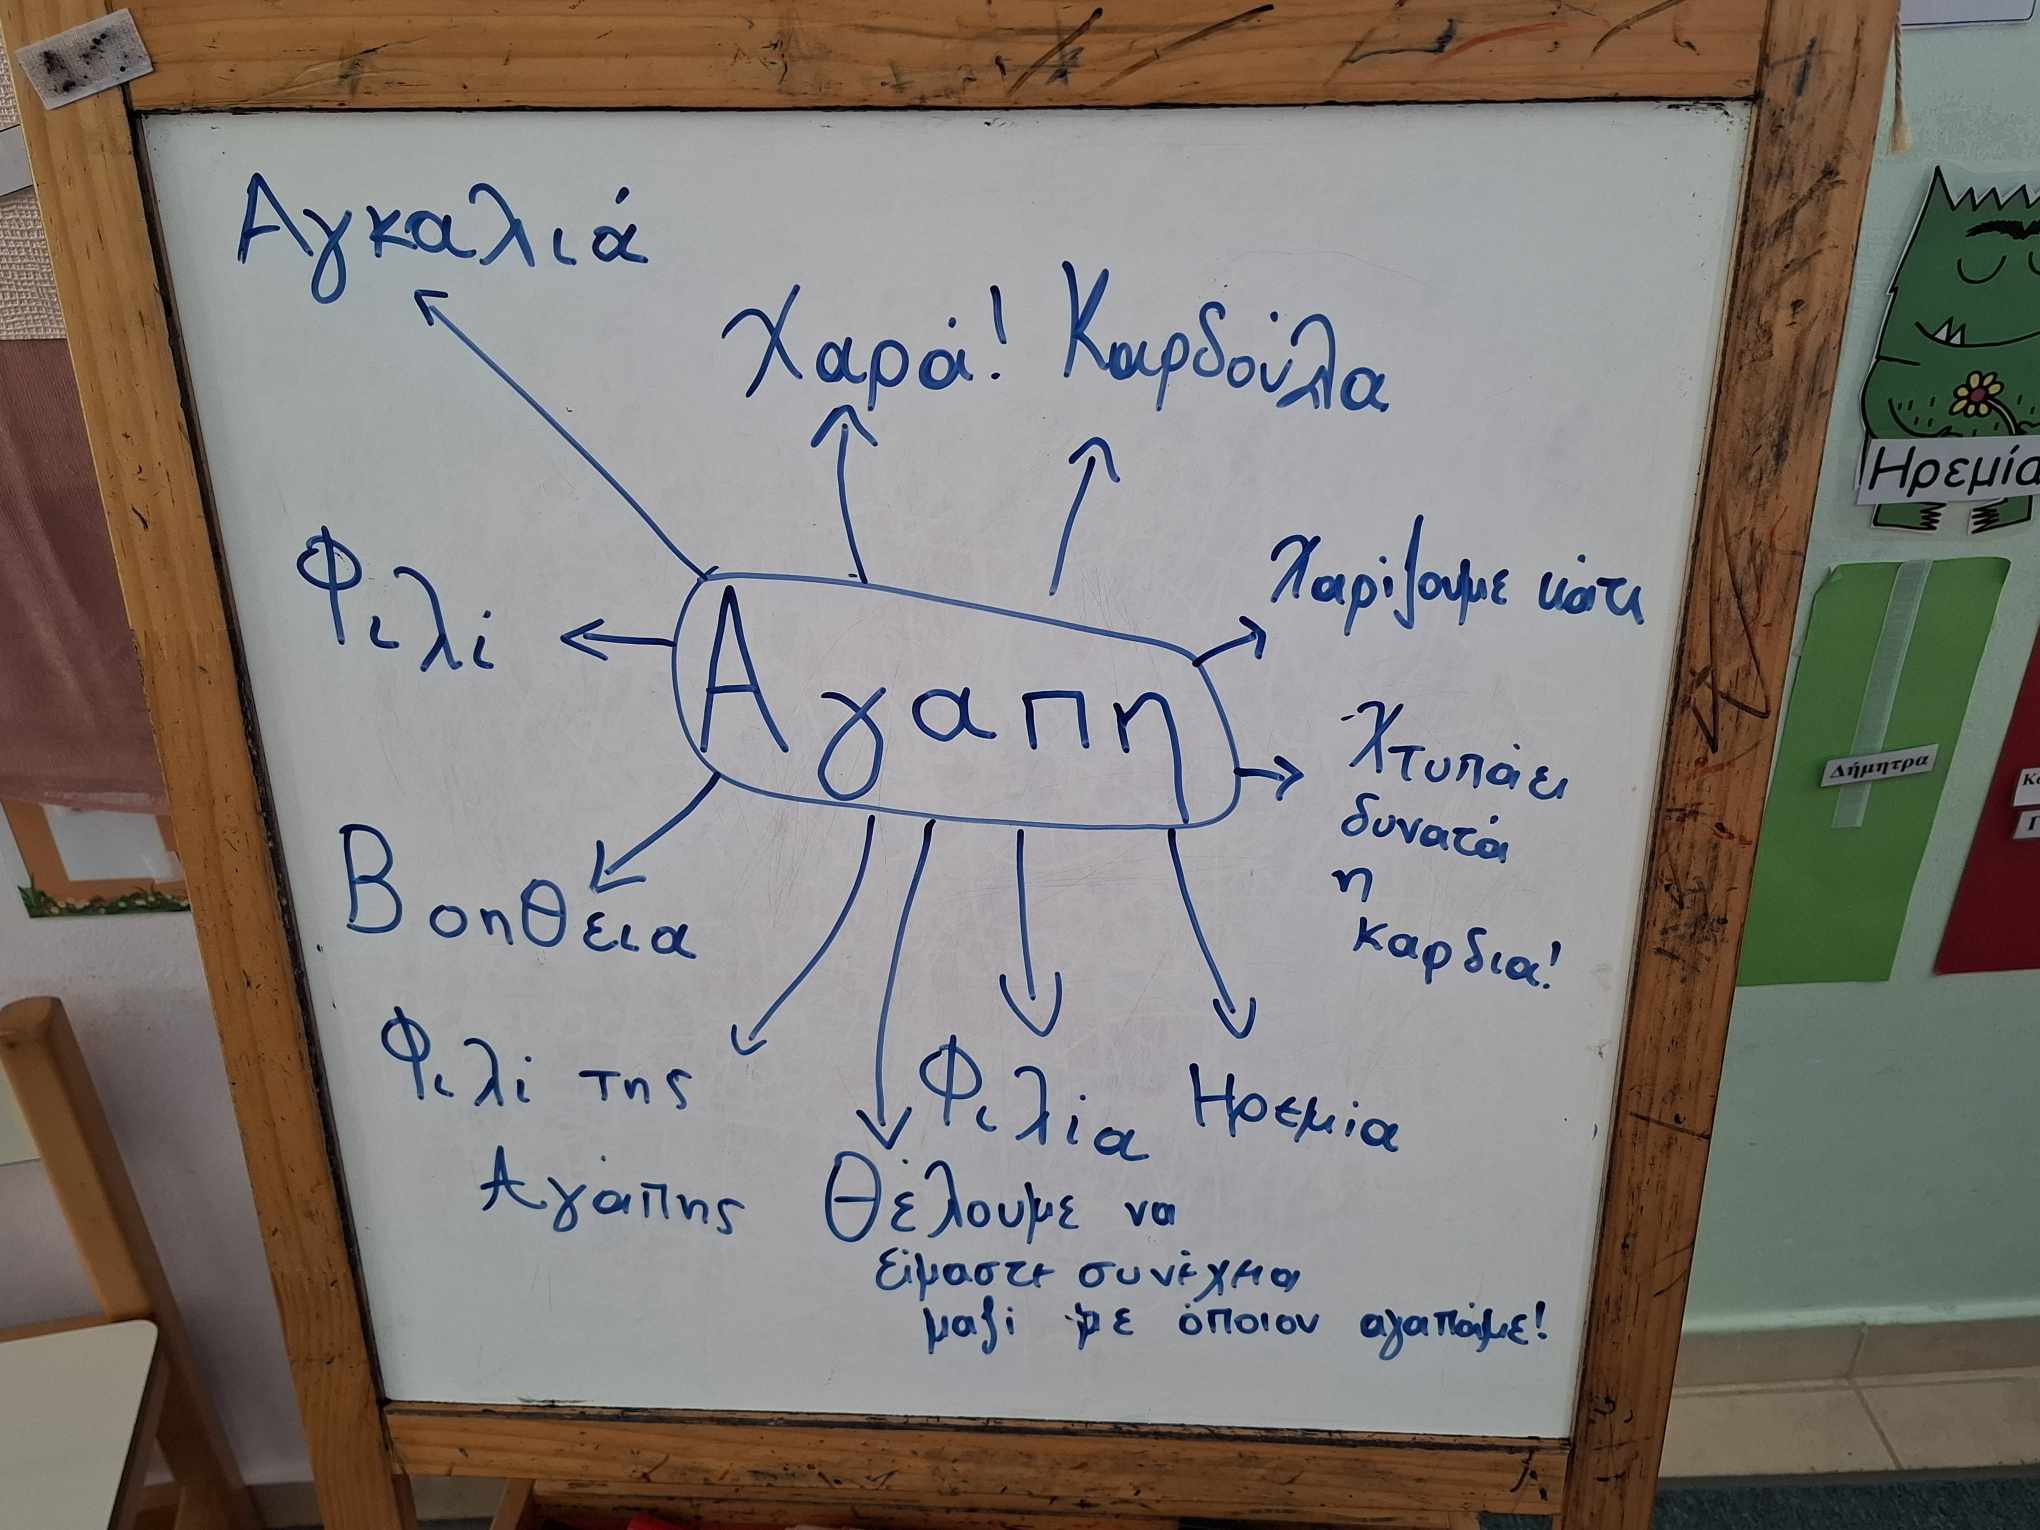 Αγκαλιά
Χαρά! Καρδούλα
Ηρεμία
Φιλί
Χαρίζουμε κάτι
Αγαπη
Χτυπάει
δυνατά
η
καρδια!
Δήμητρα
Βοηθεια
Φιλί της
Αγάπης
Φιλία
Ηρεμία
Θέλουμε να
είμαστε συνέχεια
μαζί με όποιον αγαπάμε!